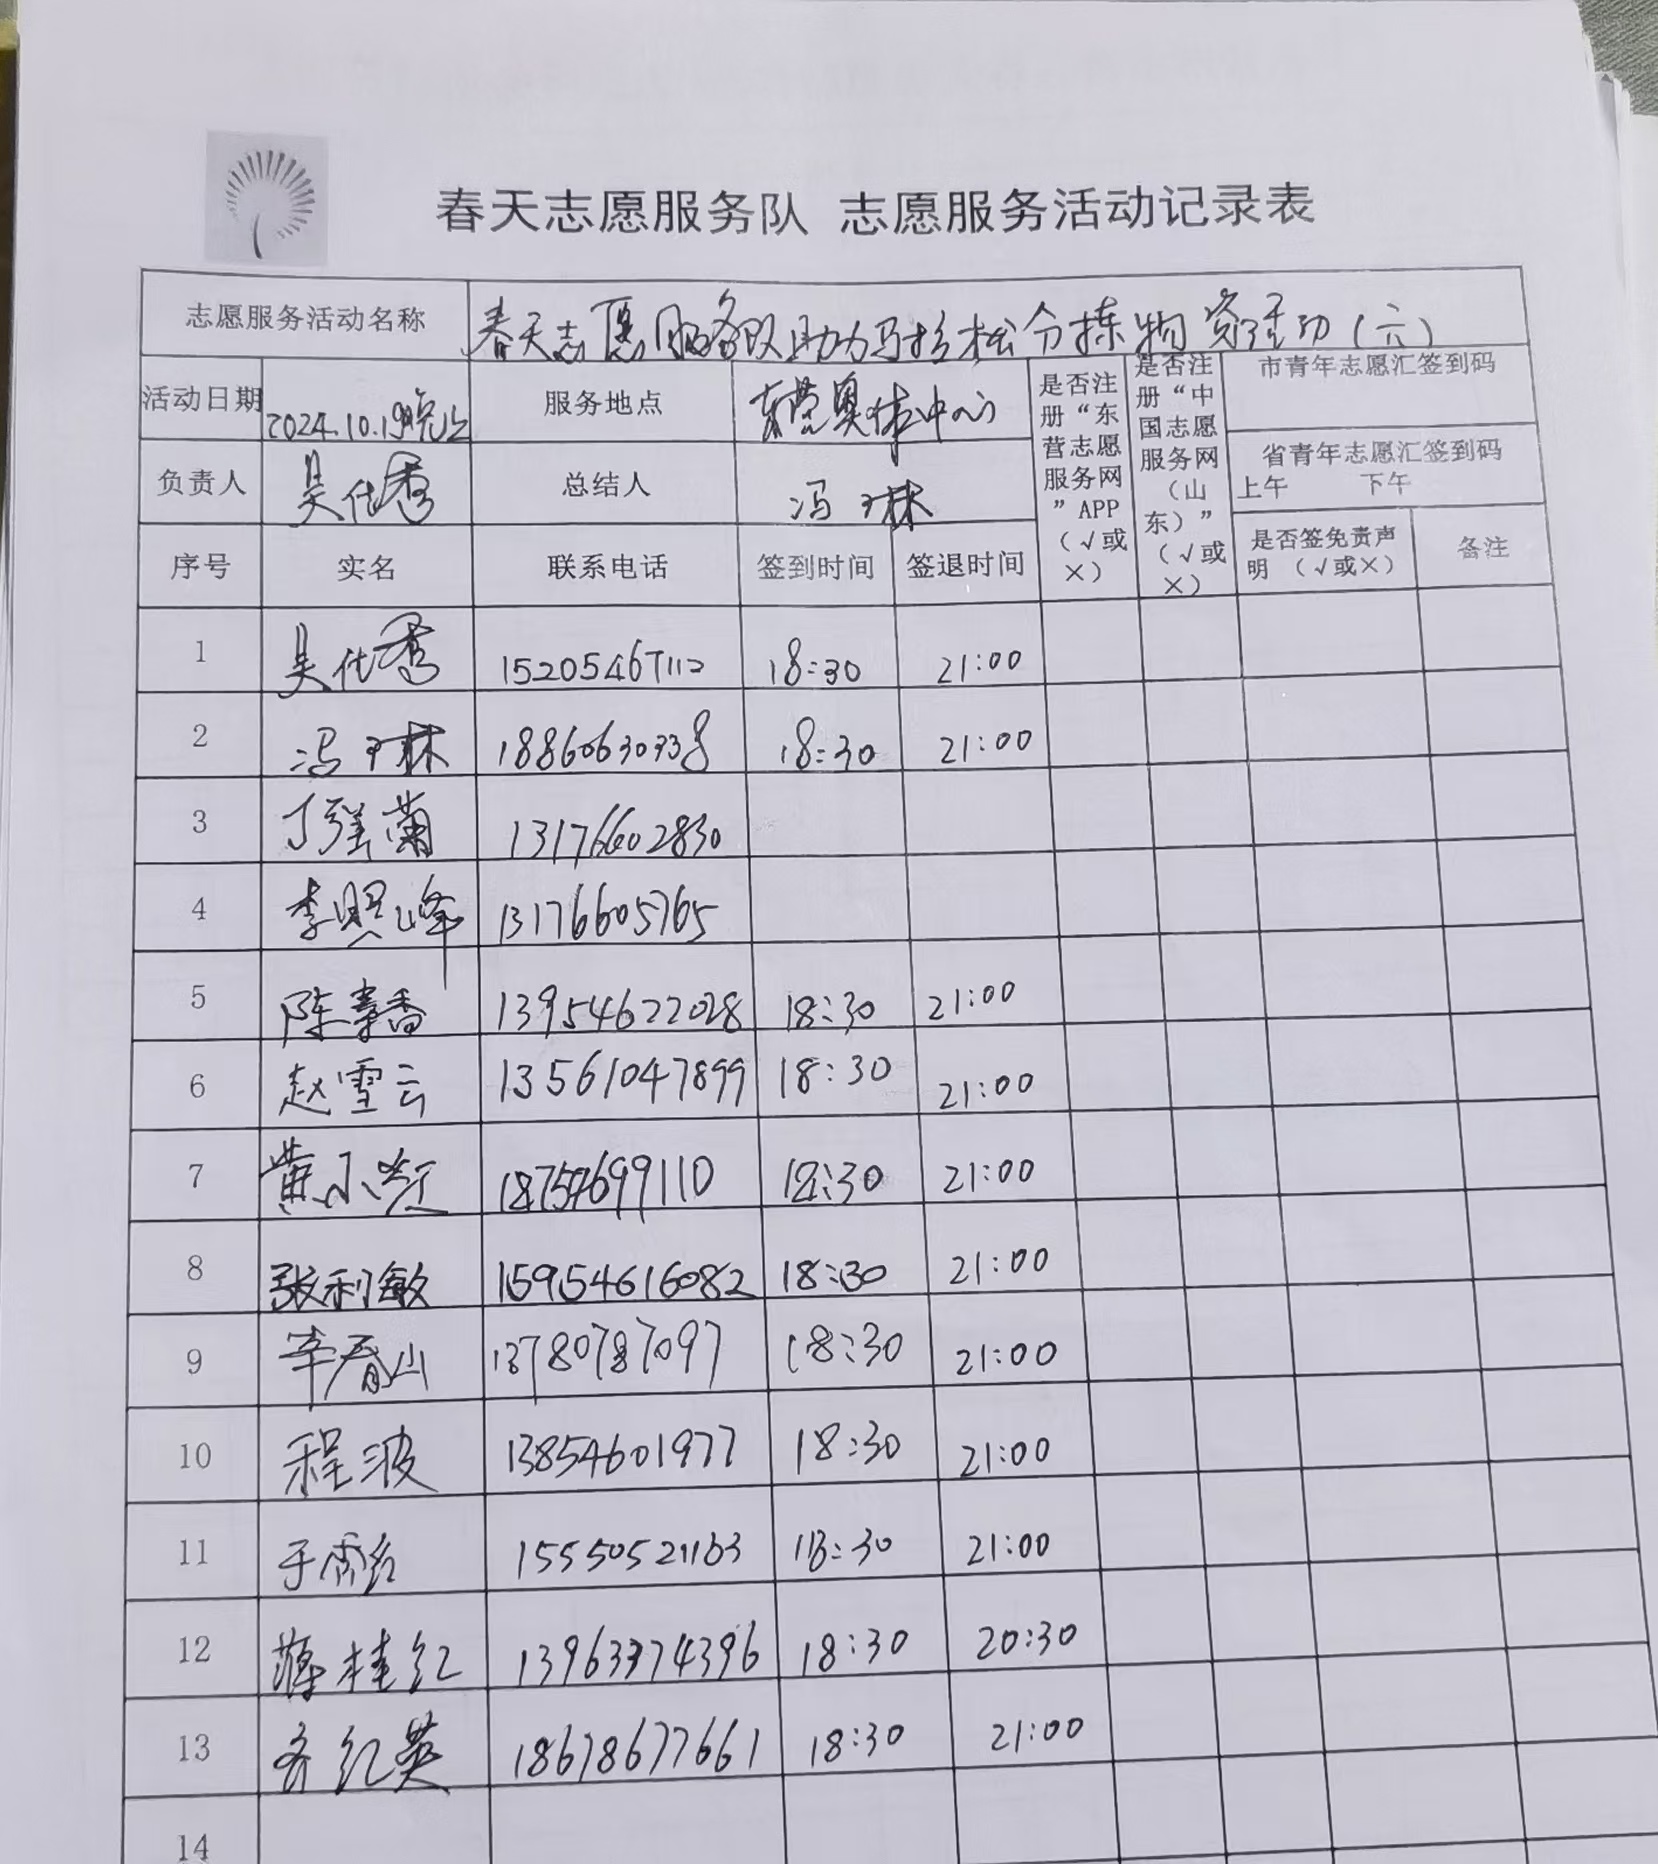 春天志愿服务队 志愿服务活动记录表
志愿服务活动名称 春天志愿服务队助力马拉松分拣物资活动(六)
活动日期 2024.10.19晚上 服务地点 东营奥体中心 是否注册“东营志愿服务网”APP(√或×) 是否注册“中国志愿服务网(山东)”(√或×) 市青年志愿汇签到码
负责人 吴仕秀 总结人 冯琳 省青年志愿汇签到码 上午 下午
序号 实名 联系电话 签到时间 签退时间 是否签免责声明 (√或×) 备注
1 吴仕秀 15205467112 18:30 21:00
2 冯琳 18860630338 18:30 21:00
3 丁强菊 13176602830
4 李照峰 13176605765
5 陈春香 13954622028 18:30 21:00
6 赵雪云 13561047899 18:30 21:00
7 黄小红 18754699110 18:30 21:00
8 张利敏 15954616082 18:30 21:00
9 辛春山 13780787097 18:30 21:00
10 程波 13854601977 18:30 21:00
11 于霄红 15550521163 18:30 21:00
12 薄桂红 13963374396 18:30 20:30
13 齐红英 18678677661 18:30 21:00
14